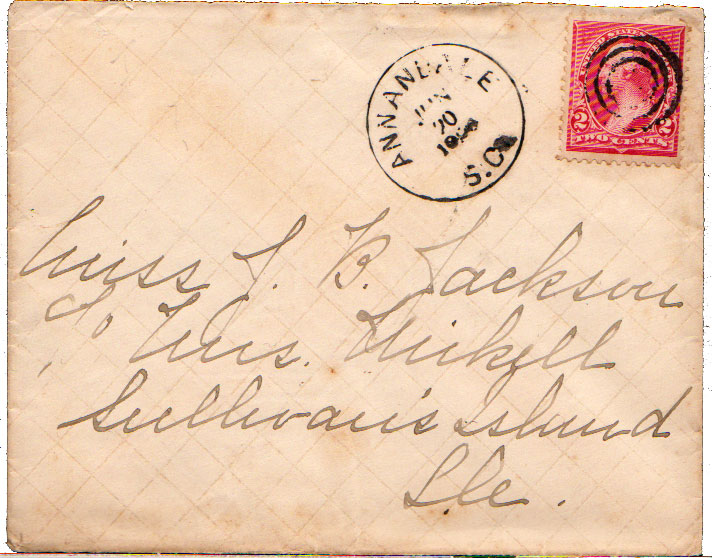 ANNANDALE
JUN
20
S.C.
UNITED STATES
2 2
TWO CENTS
Miss J. B. Jackson
C/o Mrs. Mikell
Sullivan's Island